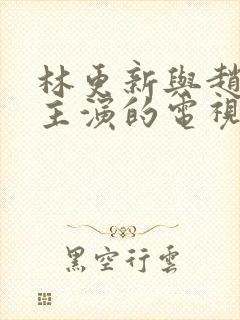 林更新與趙
主演的電視
黑空行雲